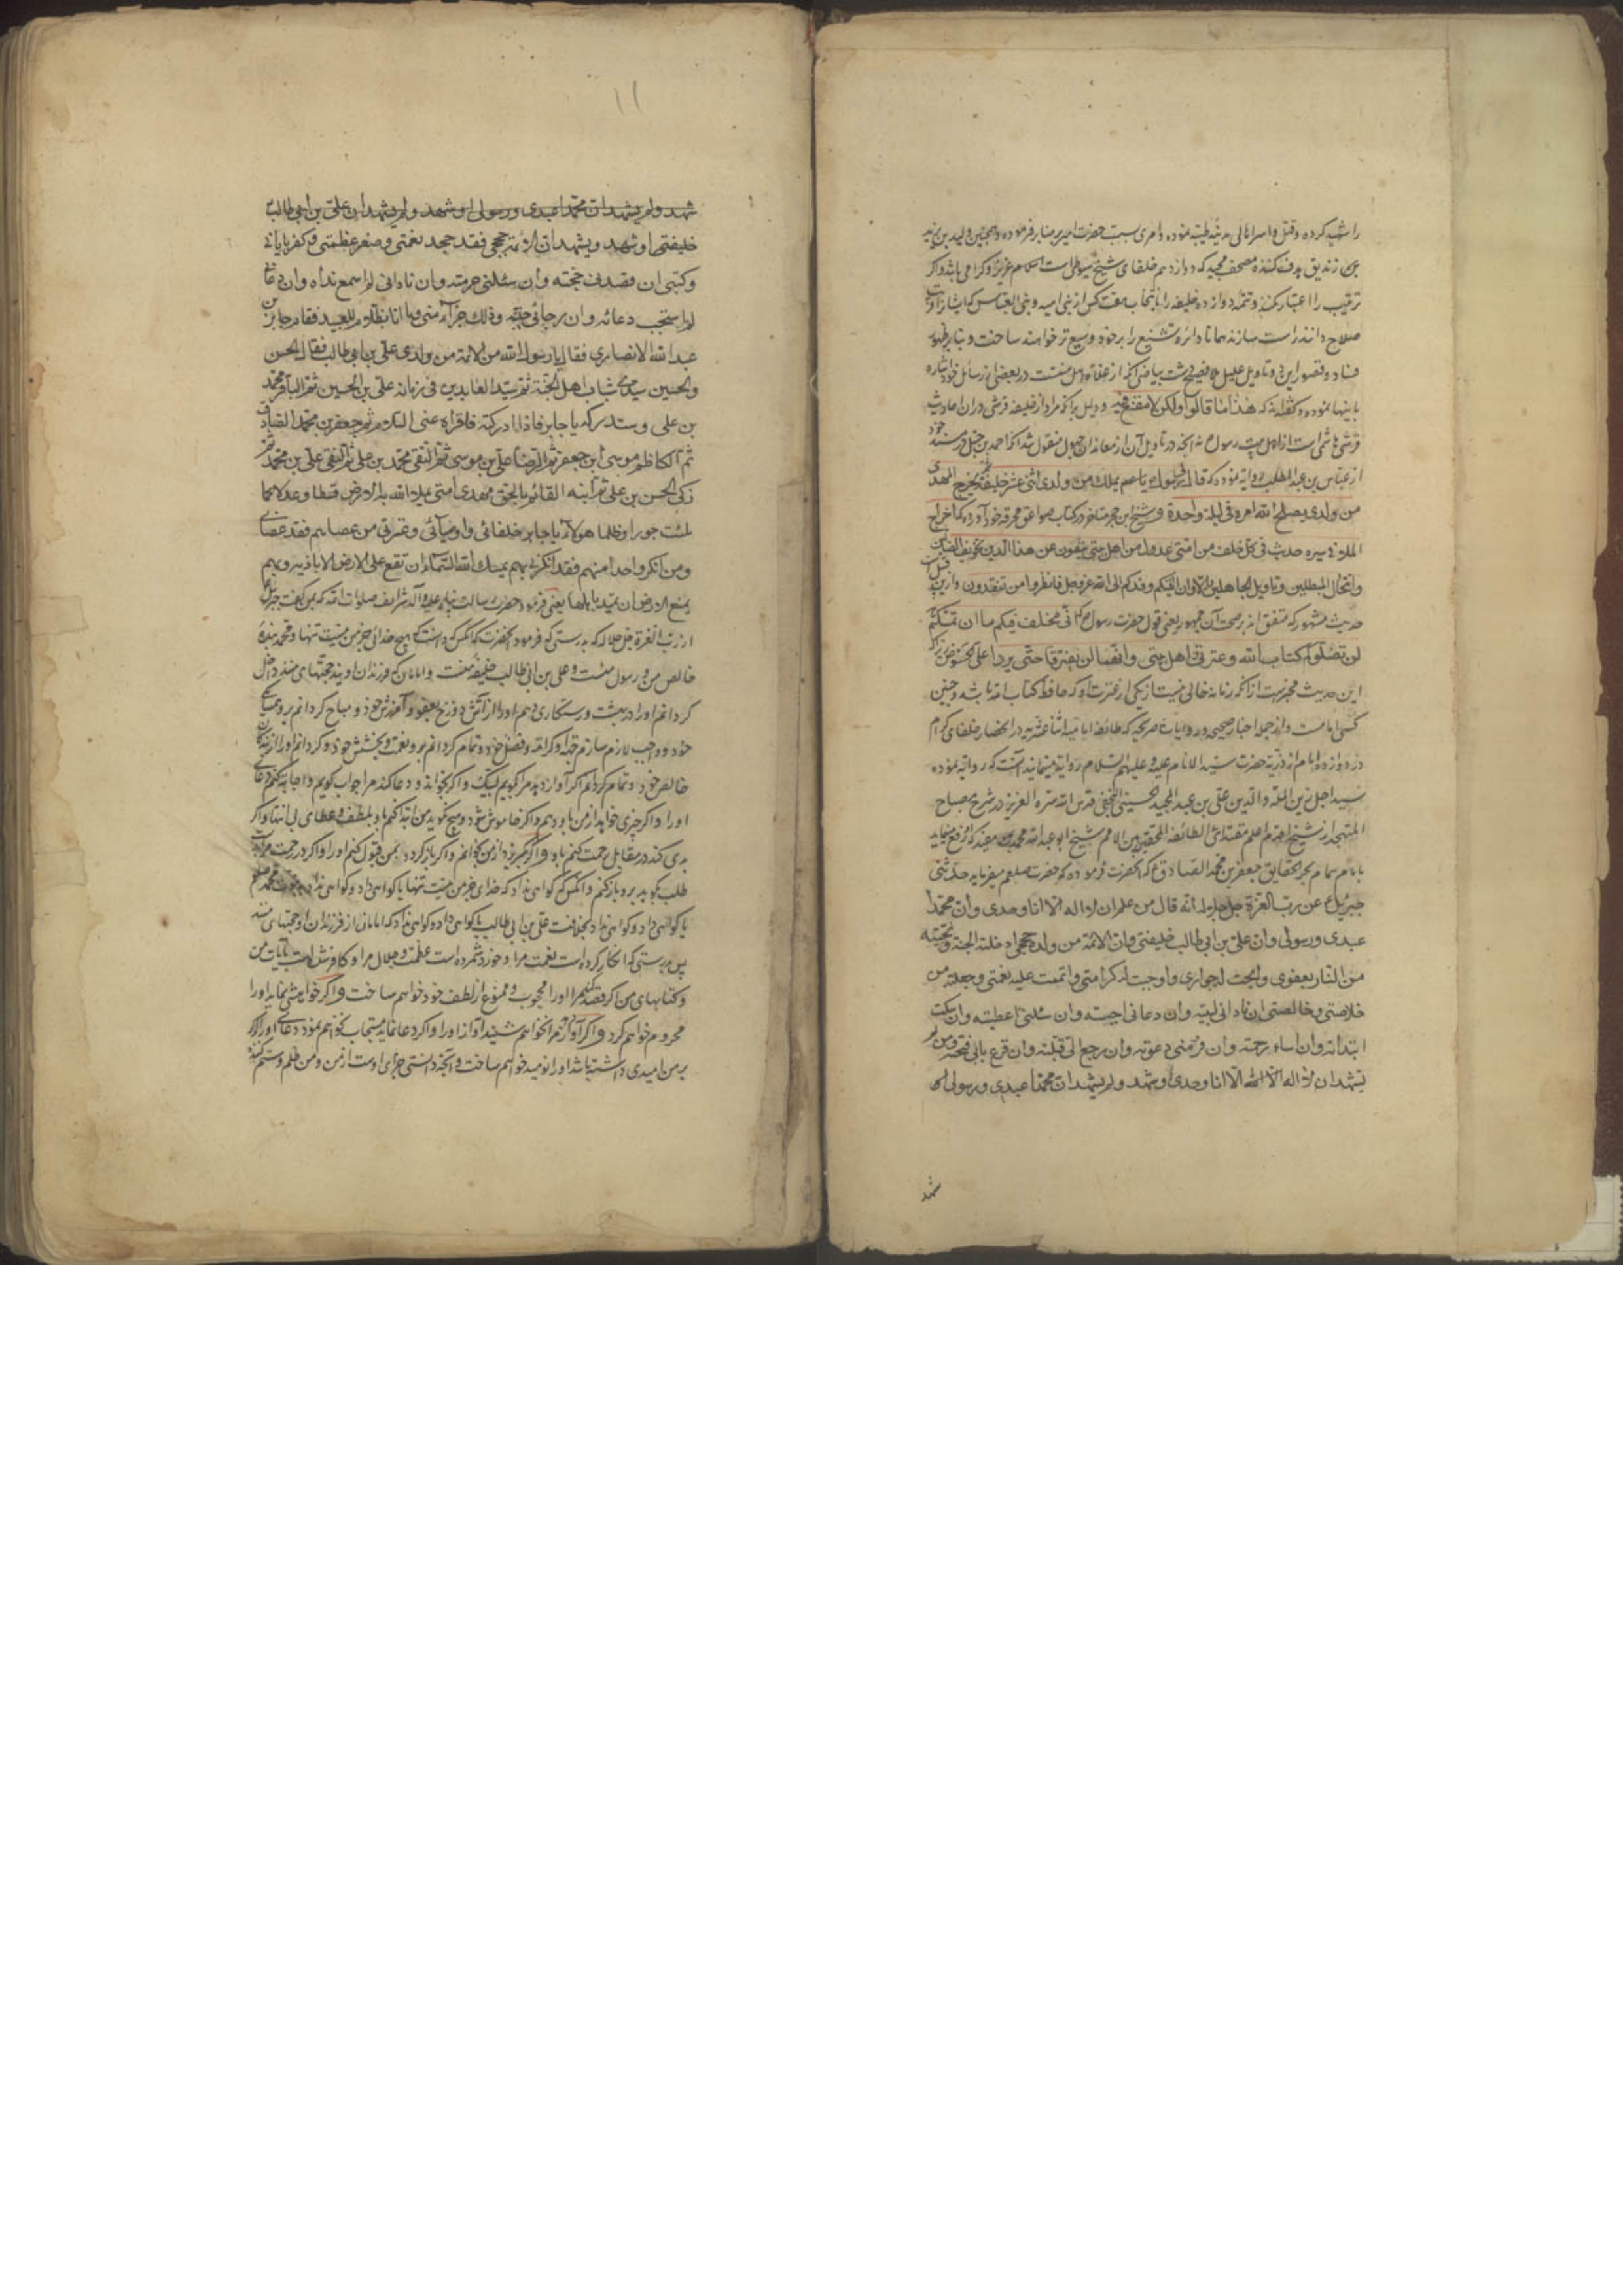 را شهید کرده و قتل و اسر اهالی مدینه طیبه نموده و امر بسب حضرت امیر بر منابر فرموده و همچنین ولید بن یزید
زندیق هدف کننده مصحف مجید که دوازدهم خلفای شیخ سیوطی است اسلام عزیز و گرامی باشد و اگر
ترتیب را اعتبار نکنند و تتمه دوازده خلیفه را بانتخاب هفت کس از بنی امیه و بنی العباس که ایشانرا
صلاح دانند راست سازند همانا دائره تشنیع را بر خود وسیع تر خواهند ساخت و بنابر ظهور
فساد و قصور این و تاویل علیل فصیح بیاضی که از علماء اهل سنت در بعضی از رسائل خود اشاره
باینها نموده و گفته که هذا ما قالوا ولکن لا مقنع فیه و دلیل بر آنکه مراد از خلیفه قرشی در آن احادیث
قرشی هاشمی است از اهل بیت رسول نه آنچه در تاویل آن از معاندان جهول منقول شد آنکه احمد بن حنبل در مسند خود
از عباس بن عبد المطلب روایه نموده که قال یا عم یملک من ولدی اثنی عشر خلیفة ثم یخرج المهدی
من ولدی یصلح الله امره فی لیلة واحدة و شیخ ابن حجر متاخر در کتاب صواعق محرقه خود آورده که اخرج
الملا فی سیره حدیث فی کل خلف من امتی عدول من اهل بیتی ینفون عن هذا الدین تحریف الضالین
وانتحال المبطلین وتاویل الجاهلین الا وان ائمتکم وفدکم الی الله عز وجل فانظروا من تفدون و ازین قبیل است
حدیث مشهور که متفق اند بر صحت آن جمهور یعنی قول حضرت رسول انی مخلف فیکم ما ان تمسکتم
لن تضلوا کتاب الله وعترتی اهل بیتی وانهما لن یفترقا حتی یردا علی الحوض زیرا که
این حدیث مخبرست از آنکه زمانه خالی نیست از یکی از عترت او که حافظ کتاب الله باشد و چنین
کسی امامست و از جمله اخبار صحیحه و روایات صریحه که طائفه امامیه اثنا عشریه در انحصار خلفای کرام
در دوازده امام از ذریه حضرت سید الانام علیه و علیهم السلام روایه مینمایند آنست که روایه نموده
سید اجل زین الملة والدین علی بن عبد الحمید الحسینی النجفی قدس الله سره العزیز در شرح مصباح
المتهجد از شیخ اعظم اعلم مقتدای الطائفة المحقة بین الامم شیخ ابو عبد الله محمد مفید که رفع مینماید
بامام همام بحر الحقایق جعفر بن محمد الصادق ع که آنحضرت فرموده که حضرت صلعم میفرماید حدثنی
جبرئیل ع عن رب العزة جل جلاله انه قال من علم ان لا اله الا انا وحدی وان محمدا
عبدی ورسولی وان علی بن ابی طالب خلیفتی وان الائمة من ولده حججی ادخلته الجنة ونجیته
من النار بعفوی وابحت له جواری واوجبت له کرامتی واتممت علیه نعمتی وجعلته من
خلاصتی وخالصتی ان نادانی لبیته وان دعانی اجبته وان سئلنی اعطیته وان سکت
ابتدأته وان اساء رحمته وان فر منی دعوته وان رجع الی قبلته وان قرع بابی فتحته ومن لم
یشهد ان لا اله الا الله الا انا وحدی او شهد ولم یشهد ان محمدا عبدی ورسولی او
شهد
۱۱
شهد ولم یشهد ان محمدا عبدی ورسولی او شهد ولم یشهد ان علی بن ابی طالب
خلیفتی او شهد ولم یشهد ان الائمة حججی فقد جحد نعمتی وصغر عظمتی وکفر بایاتی
وکتبی ان قصدنی حجبته وان سئلنی حرمته وان نادانی لم اسمع نداه وان دعانی
لم استجب دعائه وان رجانی خیبته وذلک جزاؤه منی وما انا بظلام للعبید فقام جابر بن
عبد الله الانصاری فقال یا رسول الله من الائمة من ولدی علی بن ابی طالب فقال الحسن
والحسین سیدی شباب اهل الجنة ثم سید العابدین فی زمانه علی بن الحسین ثم الباقر محمد
بن علی وستدرکه یا جابر فاذا ادرکته فاقراه عنی السلام ثم جعفر بن محمد الصادق
ثم الکاظم موسی ابن جعفر ثم الرضا علی بن موسی ثم التقی محمد بن علی ثم النقی علی بن محمد ثم
زکی الحسن بن علی ثم ابنه القائم بالحق مهدی امتی یملا الله به الارض قسطا وعدلا کما
ملئت جورا وظلما هولاء یا جابر خلفائی واوصیائی وعترتی من عصاهم فقد عصانی
ومن انکر واحدا منهم فقد انکرنی بهم یمسک الله السماء ان تقع علی الارض الا باذنه وبهم
یمنع الارض ان تمید باهلها یعنی فرمود حضرت رسالت پناه علیه و آله شرایف صلوات الله که بمن گفت جبرئیل
از رب العزة جل جلاله که بدرستی که فرمود آنحضرت که آنکس که دانست که هیچ خدائی جز من نیست تنها و محمد بنده
خالص من و رسول منست و علی بن ابی طالب خلیفه منست و امامان که فرزندان اویند حجتهای منند داخل
گردانم او را در بهشت و رستگاری دهم او را از آتش دوزخ بعفو و آمرزش خود و مباح گردانم برو همسایگی
خود و واجب و لازم سازم جهه او کرامة و فضل خود و تمام گردانم برو نعمت و بخشش خود و گردانم او را از بندگان
خالص خود و تمام گردانم اگر آواز دهد مرا گویم لبیک و اگر بخواند و دعا کند مرا جواب گویم و اجابة کنم دعای
او را و اگر چیزی خواهد از من باو دهم و اگر خاموش شود و هیچ نگوید من ابتدا کنم باو بلطف و عطای بی انتها و اگر
بدی کند در مقابل رحمت کنم باو و اگر بگریزد از من بخوانم و اگر بازگردد بمن قبول کنم او را و اگر در رحمت مرا
طلب گوید برو باز کنم و آنکس که گواهی نداد که خدای جز من نیست تنها یا گواهی داد و گواهی نداد
یا گواهی داد و گواهی نداد بخلافت علی بن ابی طالب یا گواهی داد و گواهی نداد که امامان از فرزندان او حجتهای منند
پس بدرستی که انکار کرده است نعمت مرا و خورد شمرده است عظمت و جلال مرا و کافر شده است بآیات من
و کتابهای من اگر قصد کند مرا او را محجوب و ممنوع از لطف خود خواهم ساخت و اگر خواهشی نماید او را
محروم خواهم کرد و اگر آواز مرا نخواهم شنید آواز او را و اگر دعا نماید مستجاب نخواهم نمود دعای او را و اگر
بر من امیدی داشته باشد او را نومید خواهم ساخت و آنچه دانستی جزای اوست از من و من ظلم و ستم کننده